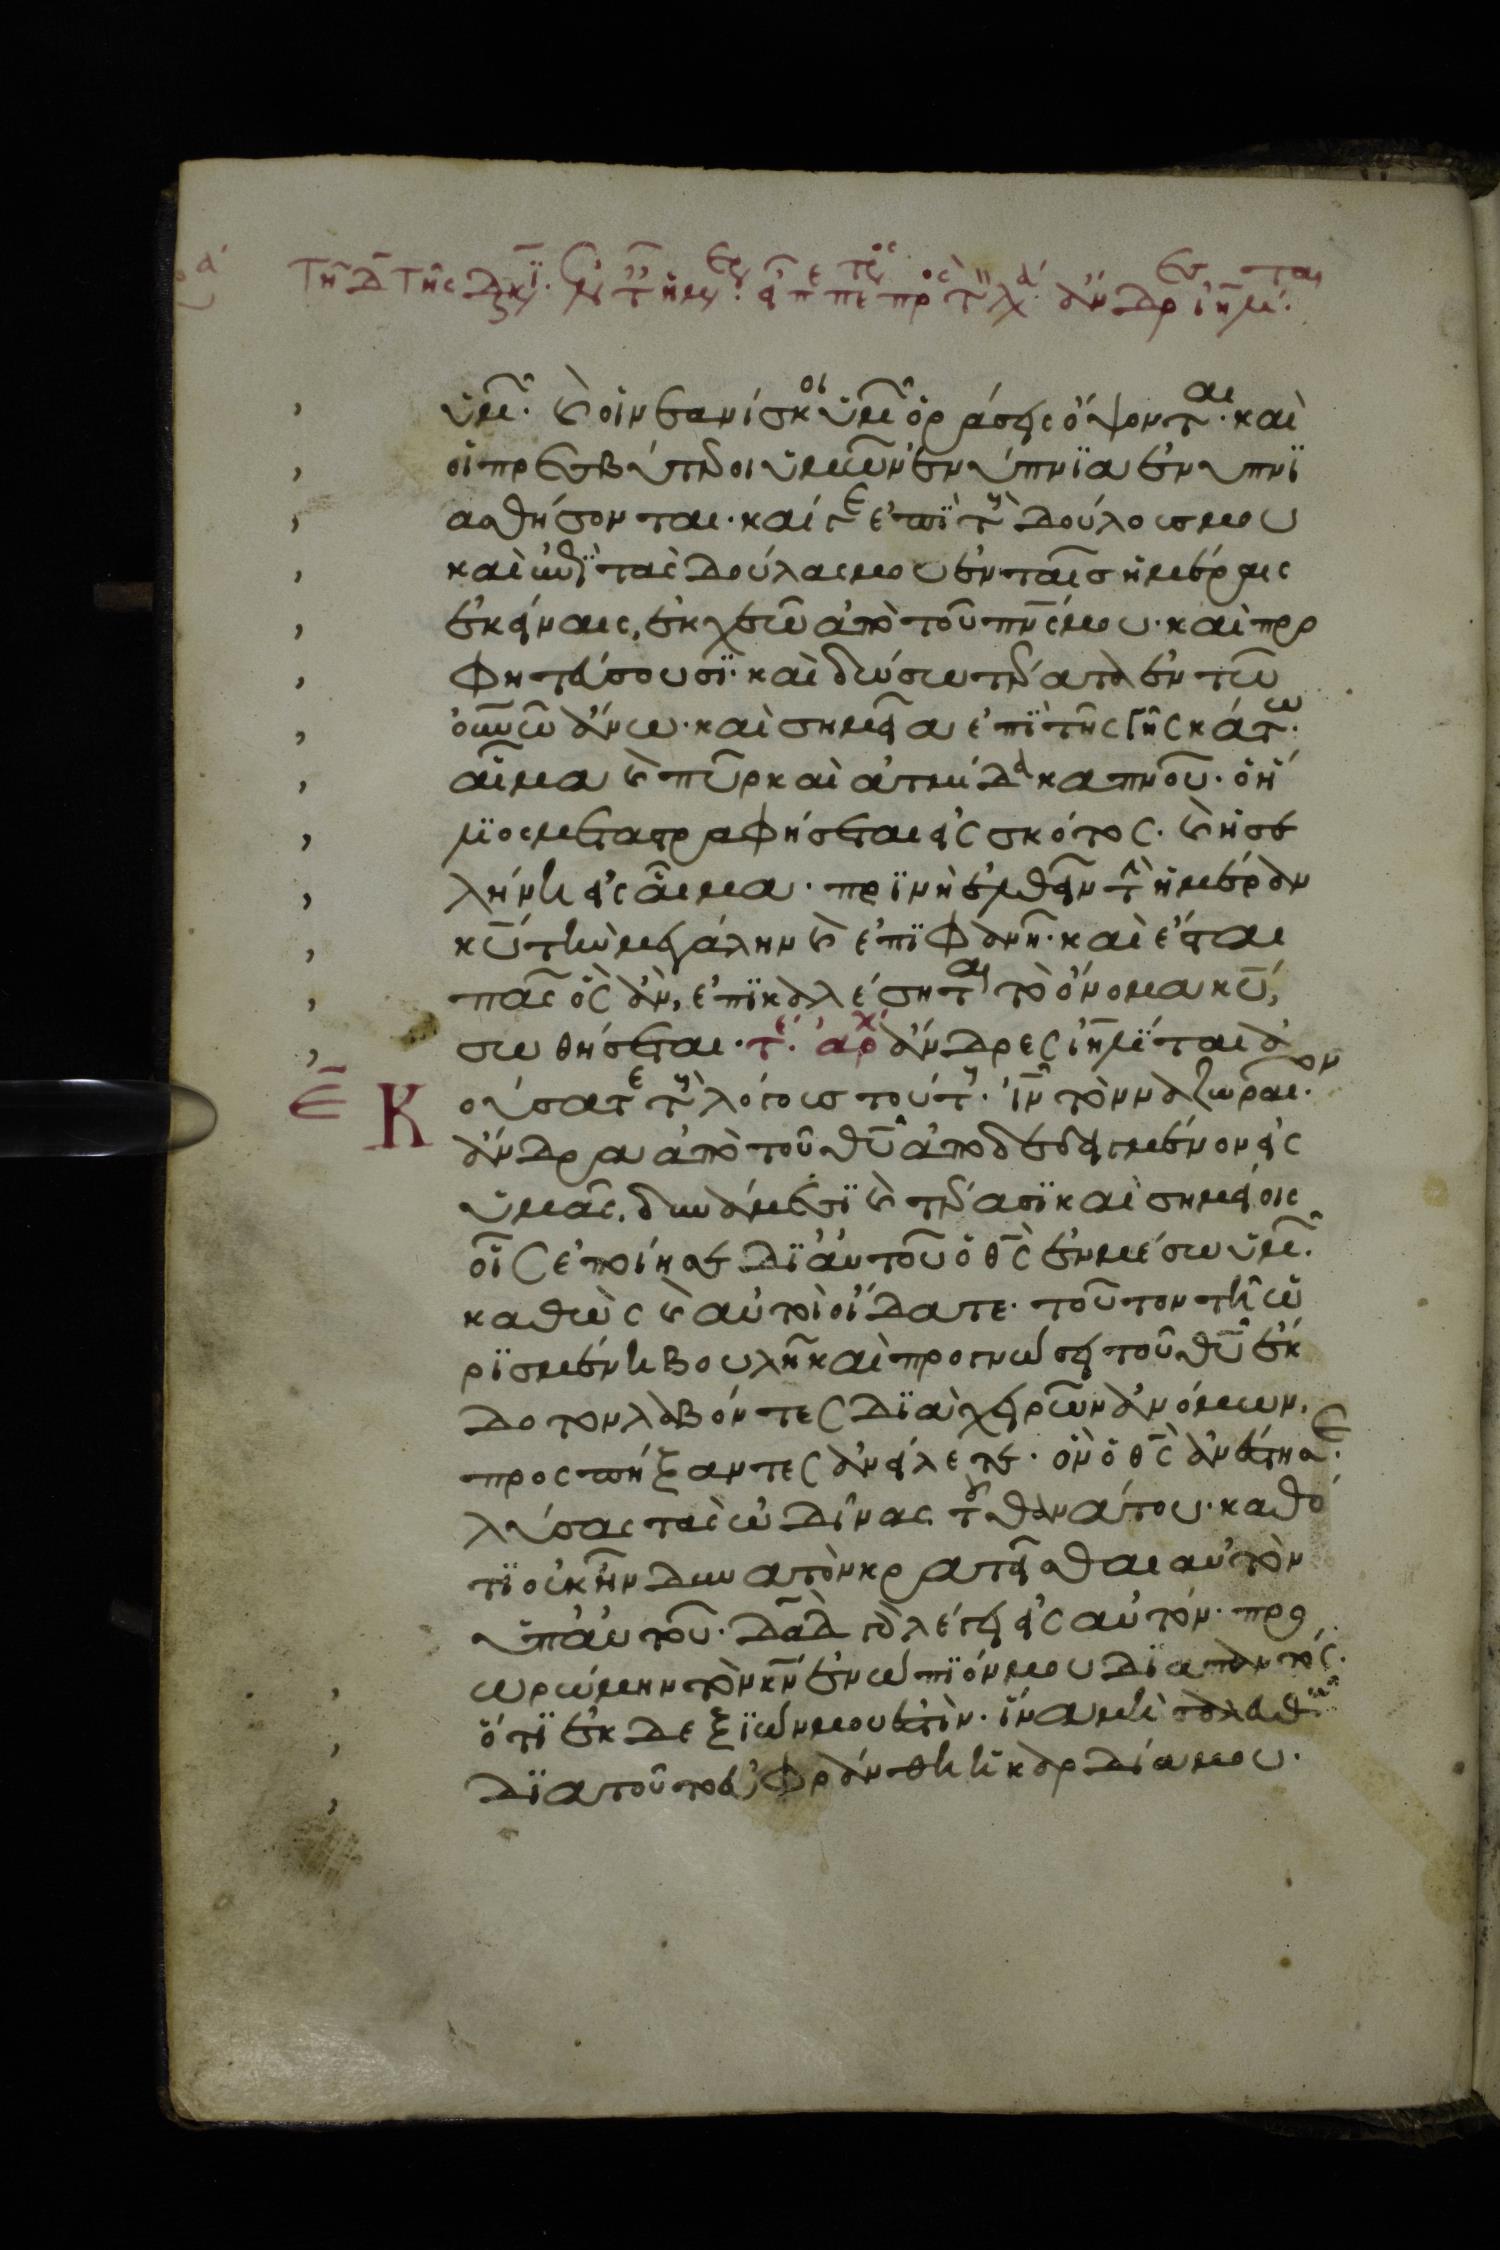 ὑμῶν· καὶ οἱ νεανίσκοι ὑμῶν ὁράσεις ὄψονται· καὶ
οἱ πρεσβύτεροι ὑμῶν ἐνύπνϊα ἐνυπνϊ
ασθήσονται· καί γε ἐπῒ τοὺς δούλους μου
καὶ ἐπῒ τὰς δούλας μου ἐν ταῖς ἡμέραις
ἐκείναις, ἐκχεῶ ἀπὸ τοῦ πνς μου· καὶ προ
φητεύσουσϊ· καὶ δώσω τέρατα ἐν τῶ
οὐνῶ ἄνω· καὶ σημεῖα ἐπῒ τῆς γῆς κάτω·
αἷμα καὶ πῦρ καὶ ἀτμίδα καπνοῦ· ὁ ἥ
λϊος μεταστραφήσεται εἰς σκότος· καὶ ἡ σε
λήνη εἰς αἷμα· πρϊν ἢ ἐλθεῖν τὴν ἡμέραν
κυ τὴν μεγάλην καὶ ἐπϊφανῆ· καὶ ἔσται
πᾶς ὃς ἂν, ἐπϊκαλέσηται τὸ ὄνομα κυ,
σωθήσεται· τέ· ἀρχ ἄνδρες ιηλϊται ἀ
Κ ούσατε τοὺς λόγους τούτους· ιν τὸν ναζωραῖον·
ἄνδρα ἀπὸ τοῦ θυ ἀποδεδειγμένον εἰς
ὑμᾶς, δυνάμεσϊ καὶ τέρασϊ καὶ σημείοις
οἷς ἐποίησε δϊ αὐτοῦ ὁ θς ἐν μέσω ὑμῶν·
καθὼς καὶ αὐτοὶ οἴδατε· τοῦτον τῆ ὡ
ρϊσμένη βουλῆ καὶ προγνώσει τοῦ θυ ἔκ
δοτον λαβόντες δϊὰ χειρῶν ἀνόμων,
προσπήξαντες ἀνείλετε· ὃν ὁ θς ἀνέστησε·
λύσας τὰς ὠδῖνας τοῦ θανάτου· καθό
τϊ οὐκ ἦν δυνατὸν κρατεῖσθαι αὐτὸν
ὑπ αὐτοῦ· δαδ γὰρ λέγει εἰς αὐτόν· προ
ωρώμην τὸν κν ἐνώπϊόν μου δϊαπαντός·
ὅτϊ ἐκ δεξϊῶν μου ἐστὶν· ἵνα μὴ σαλευθῶ·
δϊατοῦτο εὐφράνθη ἡ καρδία μου·